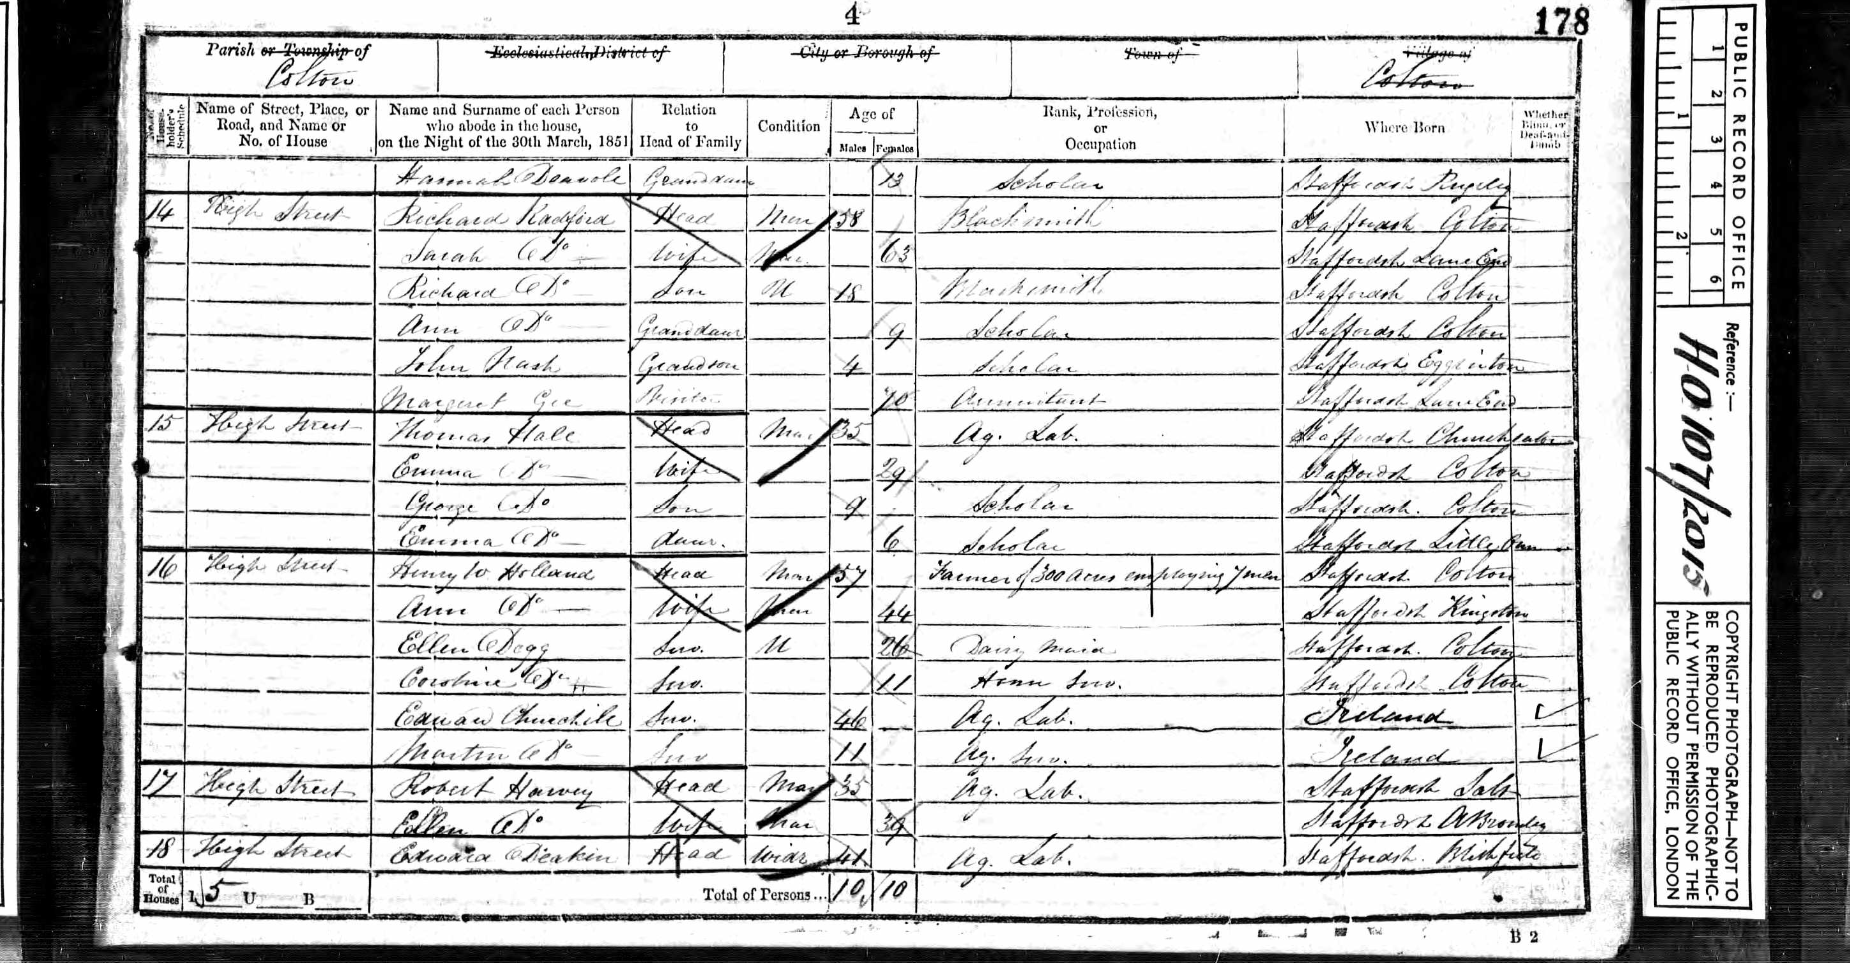 4
178
Parish or Township of
Colton
Ecclesiastical District of
City or Borough of
Town of
Village of
Colton
No. of House-holder's Schedule
Name of Street, Place, or Road, and Name or No. of House
Name and Surname of each Person who abode in the house, on the Night of the 30th March, 1851
Relation to Head of Family
Condition
Age of
Males Females
Rank, Profession, or Occupation
Where Born
Whether Blind, or Deaf-and-Dumb
Hannah Granddaur 13 Scholar Staffordsh Rugeley
14 High Street Richard Radford Head Mar 58 Blacksmith Staffordsh Colton
Sarah Do Wife Mar. 63 Staffordsh Lane End
Richard Do Son U 18 Blacksmith Staffordsh Colton
Ann Do Granddaur 9 Scholar Staffordsh Colton
John Nash Grandson 4 Scholar Staffordsh Egginton
Margaret Gee Visitor 70 Annuitant Staffordsh Lane End
15 High Street Thomas Hale Head Mar 35 Ag. Lab. Staffordsh
Emma Do Wife 29 Staffordsh Colton
George Do Son 9 Scholar Staffordsh. Colton
Emma Do daur. 6 Scholar Staffordsh
16 High Street Henry W Holland Head Mar 57 Farmer of 300 Acres employing 7 men Staffordsh. Colton
Ann Do Wife Mar 44 Staffordsh Kingston
Ellen Dogg Serv. U 26 Dairy Maid Staffordsh. Colton
Caroline Do Serv. 11 House Serv. Staffordsh Colton
Edward Churchill Serv. 46 Ag. Lab. Ireland
Martin Do Serv 11 Ag. Serv. Ireland
17 High Street Robert Harvey Head Mar 35 Ag. Lab. Staffordsh Salt
Ellen Do Wife Mar 39 Staffordsh A Bromley
18 High Street Edward Deakin Head Widr 41 Ag. Lab. Staffordsh. Blithfield
Total of Houses I 5 U B Total of Persons... 10 10
B 2
PUBLIC RECORD OFFICE
1 2 3 4 5 6
1 2
Reference :—
HO 107/2015
COPYRIGHT PHOTOGRAPH—NOT TO BE REPRODUCED PHOTOGRAPHIC-ALLY WITHOUT PERMISSION OF THE PUBLIC RECORD OFFICE, LONDON